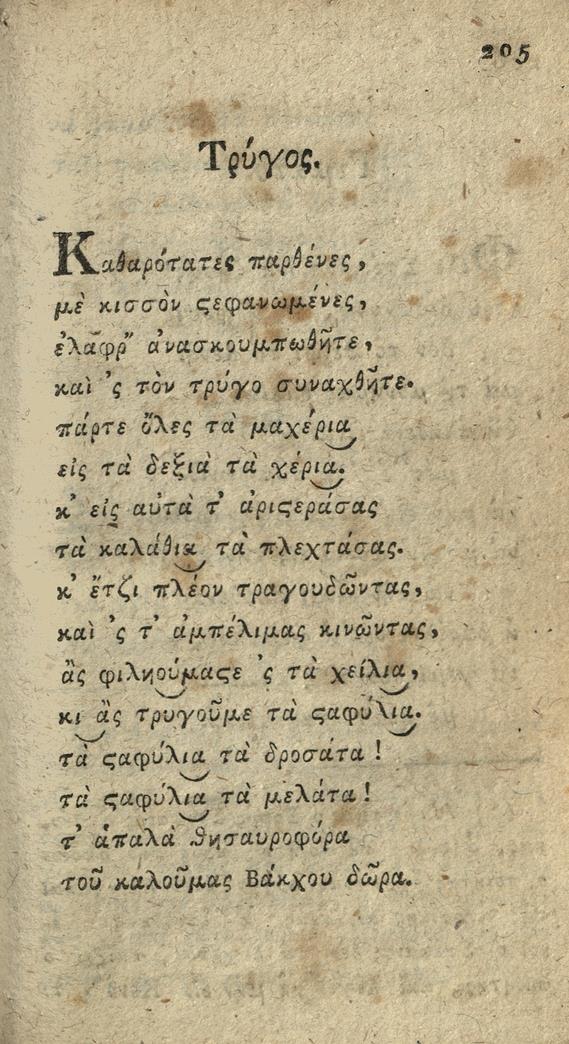 205
Τρύγος.
Καθαρότατες παρθένες,
μὲ κισσὸν ϛεφανωμένες,
ἐλαφρ' ἀνασκουμπωθῆτε,
καὶ 'ς τὸν τρύγο συναχθῆτε.
πάρτε ὅλες τὰ μαχέρια
εἰς τὰ δεξιὰ τὰ χέρια.
κ' εἰς αὐτὰ τ' ἀριϛεράσας
τὰ καλάθια τὰ πλεχτάσας.
κ' ἔτζι πλέον τραγουδῶντας,
καὶ 'ς τ' ἀμπέλιμας κινῶντας,
ἂς φιληούμαϛε 'ς τὰ χείλια,
κι ἂς τρυγοῦμε τὰ ϛαφύλια.
τὰ ϛαφύλια τὰ δροσάτα!
τὰ ϛαφύλια τὰ μελάτα!
τ' ἁπαλὰ ϑησαυροφόρα
τοῦ καλοῦμας Βάκχου δῶρα.